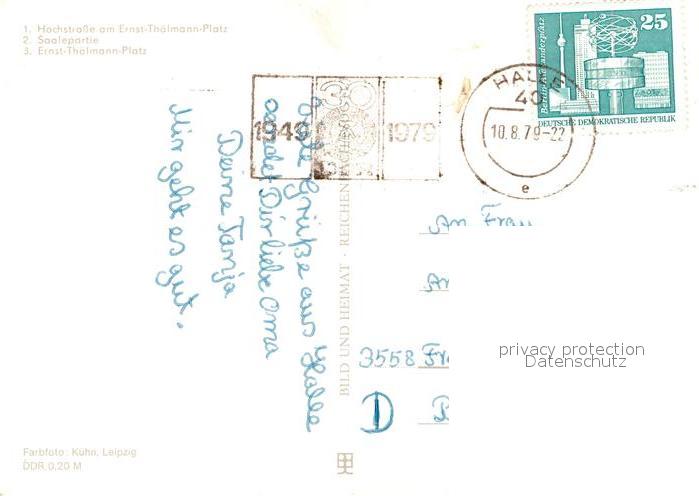 1. Hochstraße am Ernst-Thälmann-Platz
2. Saalepartie
3. Ernst-Thälmann-Platz
25
Berlin, Alexanderplatz
DEUTSCHE DEMOKRATISCHE REPUBLIK
HALLE
40
10.8.79-22
e
1949
30
DDR
1979
Viele Grüße aus Halle
sendet Dir liebe Oma
Deine Tanja
Mir geht es gut.
BILD UND HEIMAT · REICHENBACH
An Frau
3558
D
privacy protection
Datenschutz
Farbfoto: Kühn, Leipzig
DDR 0,20 M